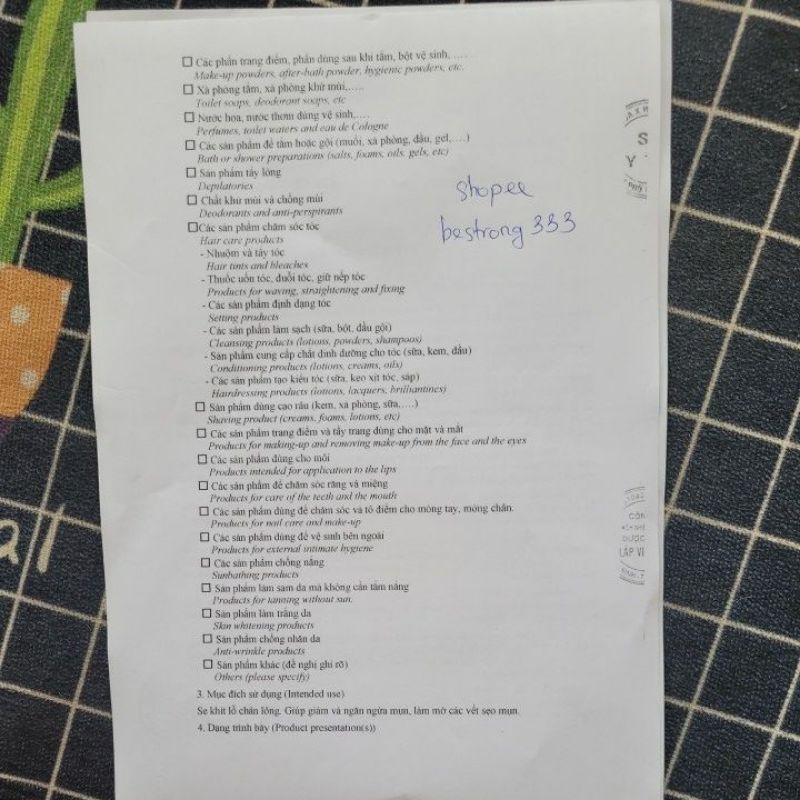 ☐ Các phấn trang điểm, phấn dùng sau khi tắm, bột vệ sinh, ….
Make-up powders, after-bath powder, hygienic powders, etc.
☐ Xà phòng tắm, xà phòng khử mùi,…..
Toilet soaps, deodorant soaps, etc
☐ Nước hoa, nước thơm dùng vệ sinh,….
Perfumes, toilet waters and eau de Cologne
☐ Các sản phẩm để tắm hoặc gội (muối, xà phòng, dầu, gel,….)
Bath or shower preparations (salts, foams, oils. gels, etc)
☐ Sản phẩm tẩy lông
Depilatories
☐ Chất khử mùi và chống mùi
Deodorants and anti-perspirants
shopee
bestrong 333
☐Các sản phẩm chăm sóc tóc
Hair care products
- Nhuộm và tẩy tóc
Hair tints and bleaches
- Thuốc uốn tóc, duỗi tóc, giữ nếp tóc
Products for waving, straightening and fixing
- Các sản phẩm định dạng tóc
Setting products
- Các sản phẩm làm sạch (sữa, bột, dầu gội)
Cleansing products (lotions, powders, shampoos)
- Sản phẩm cung cấp chất dinh dưỡng cho tóc (sữa, kem, dầu)
Conditioning products (lotions, creams, oils)
- Các sản phẩm tạo kiểu tóc (sữa, keo xịt tóc, sáp)
Hairdressing products (lotions, lacquers, brilliantines)
☐ Sản phẩm dùng cạo râu (kem, xà phòng, sữa,….)
Shaving product (creams, foams, lotions, etc)
☐ Các sản phẩm trang điểm và tẩy trang dùng cho mặt và mắt
Products for making-up and removing make-up from the face and the eyes
☐ Các sản phẩm dùng cho môi
Products intended for application to the lips
☐ Các sản phẩm để chăm sóc răng và miệng
Products for care of the teeth and the mouth
☐ Các sản phẩm dùng để chăm sóc và tô điểm cho móng tay, móng chân.
Products for nail care and make-up
☐ Các sản phẩm dùng để vệ sinh bên ngoài
Products for external intimate hygiene
☐ Các sản phẩm chống nắng
Sunbathing products
☐ Sản phẩm làm sạm da mà không cần tắm nắng
Products for tanning without sun.
☐ Sản phẩm làm trắng da
Skin whitening products
☐ Sản phẩm chống nhăn da
Anti-wrinkle products
☐ Sản phẩm khác (đề nghị ghi rõ)
Others (please specify)
3. Mục đích sử dụng (Intended use)
Se khít lỗ chân lông. Giúp giảm và ngăn ngừa mụn, làm mờ các vết sẹo mụn.
4. Dạng trình bày (Product presentation(s))
S
Y
DƯỢC
LẬP VI